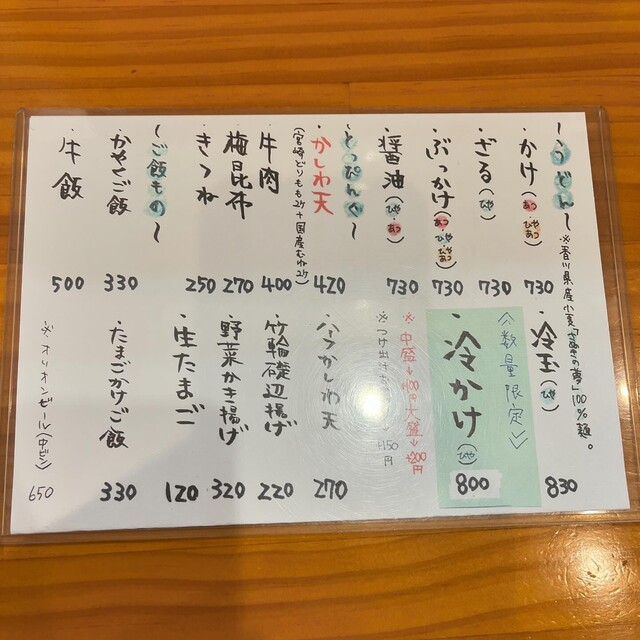 ～うどん～
※香川県産小麦「さぬきの夢」100%麺。
・かけ(あつ・ひやあつ) 730
・ざる(ひや) 730
・ぶっかけ(あつ・ひや・ひやあつ) 730
・醤油(ひや・あつ) 730
・冷玉(ひや) 830
<数量限定>
・冷かけ(ひや) 800
※中盛→+100円 大盛→+200円
※つけ出汁 +150円
～とっぴんぐ～
・かしわ天 420
(宮崎どりもも2ケ+国産むね2ケ)
・牛肉 400
・梅昆布 270
・きつね 250
・ハーフかしわ天 270
・竹輪磯辺揚げ 220
・野菜かき揚げ 320
・生たまご 120
～ご飯もの～
・かやくご飯 330
・牛飯 500
・たまごかけご飯 330
※オリオンビール(中ビン) 650